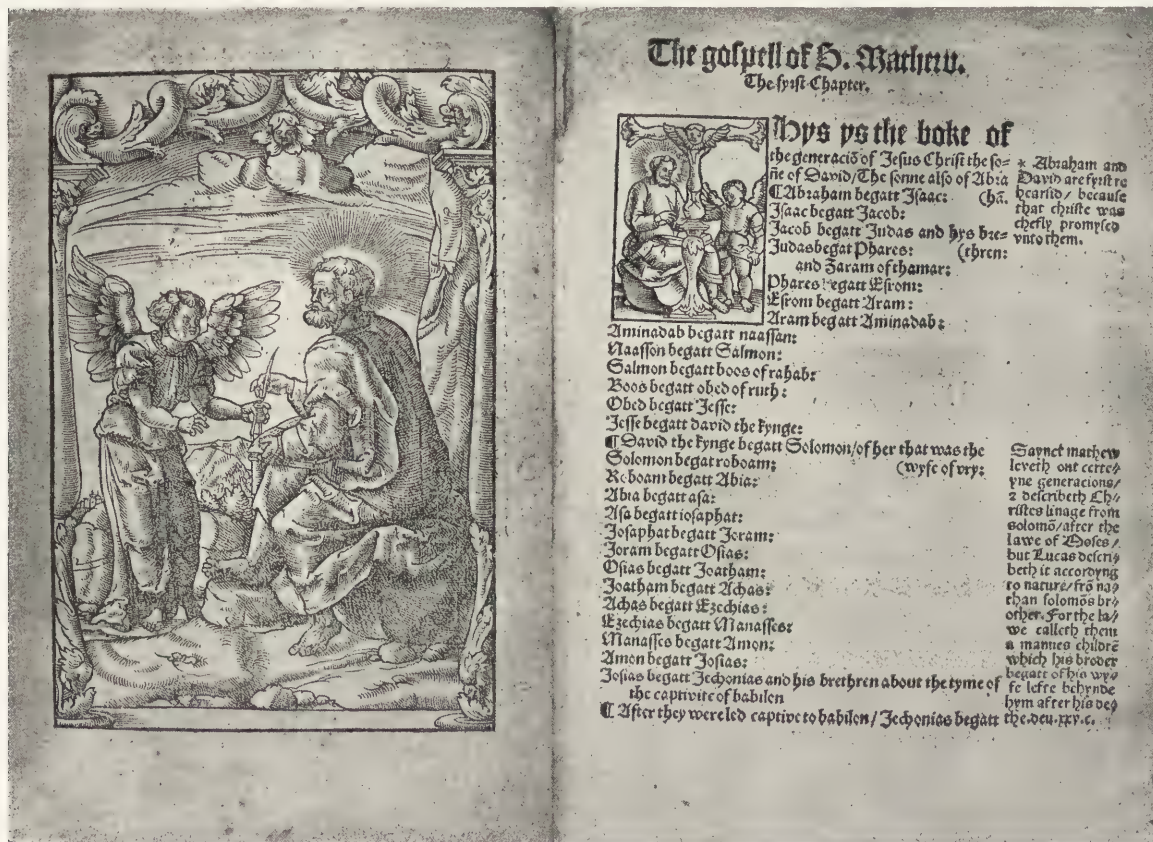 The gospell of S. Mathew.
The fyrst Chapter.
Thys ys the boke of
the generaciō of Jesus Christ the so=
ñe of David/The sonne also of Abra
¶Abraham begatt Isaac: (hā.
Isaac begatt Jacob:
Jacob begatt Judas and hys bre=
Judas begat Phares: (thren:
and Zaram of thamar:
Phares begatt Esrom:
Esrom begatt Aram:
Aram begatt Aminadab:
Aminadab begatt naassan:
Naasson begatt Salmon:
Salmon begatt boos of rahab:
Boos begatt obed of ruth:
Obed begatt Jesse:
Jesse begatt david the kynge:
¶ David the kynge begatt Solomon/of her that was the
Solomon begat roboam: (wyfe of vry:
Roboam begatt Abia:
Abia begatt asa:
Asa begatt iosaphat:
Josaphat begatt Joram:
Joram begatt Osias:
Osias begatt Joatham:
Joatham begatt Achas:
Achas begatt Ezechias:
Ezechias begatt Manasses:
Manasses begatt Amon:
Amon begatt Josias:
Josias begatt Jechonias and his brethren about the tyme of
the captivite of babilon
¶ After they were led captive to babilon/Jechonias begatt
* Abraham and
David are fyrst re
hearsid/ because
that christe was
chefly promysed
vnto them.
Saynct mathew
leveth out certe/
yne generacions/
2 describeth Ch/
ristes linage from
solomō/after the
lawe of Moses/
but Lucas descri/
beth it accordyng
to nature/frō na/
than solomōs br/
other. For the la/
we calleth them
a mannes childrē
which his broder
begatt of his wy/
fe lefte behynde
hym after his de/
the.deu.xxv.c.